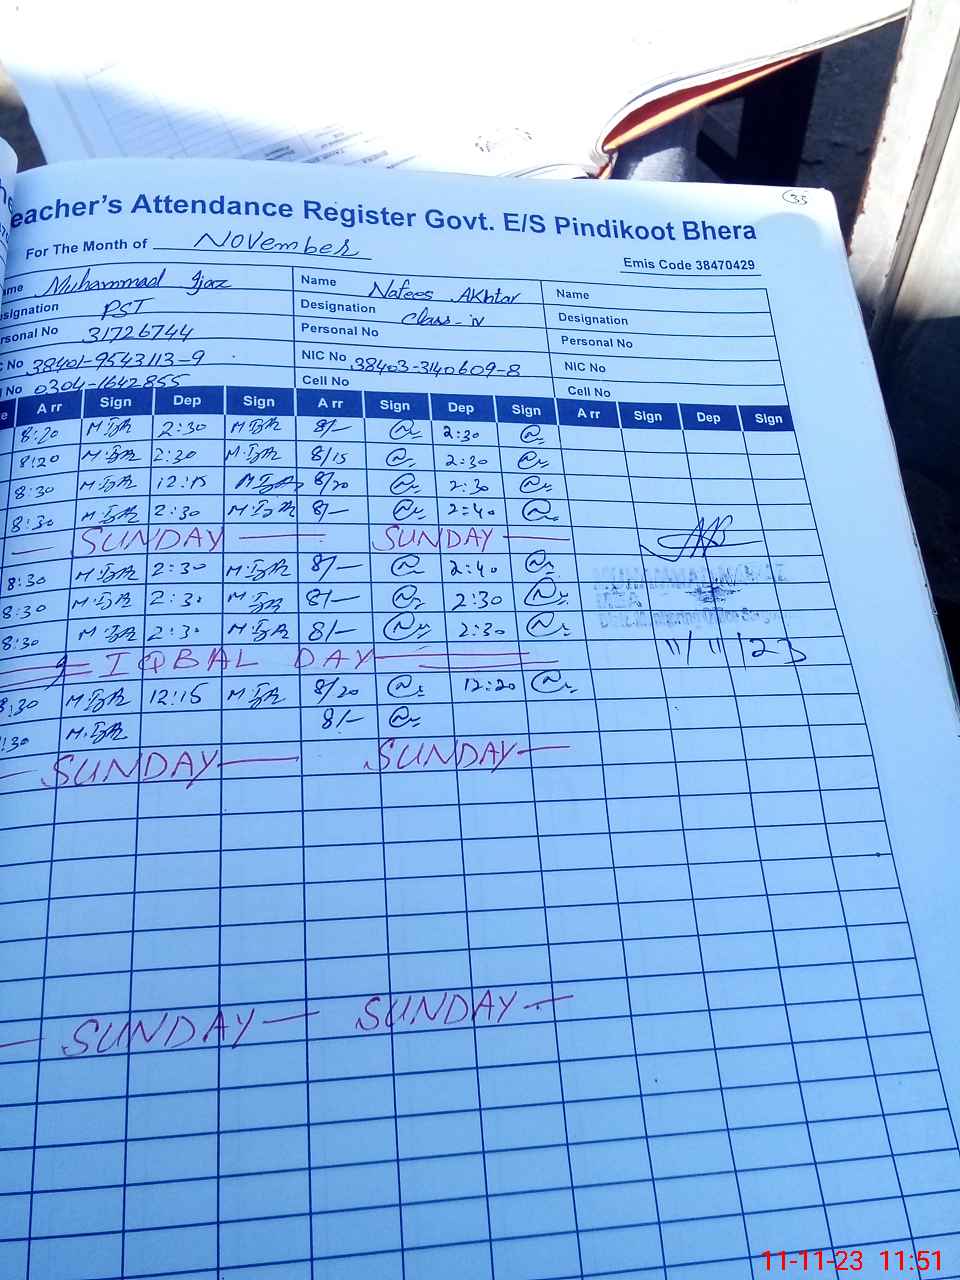 eacher's Attendance Register Govt. E/S Pindikoot Bhera
35
For The Month of November
Emis Code 38470429
ame Muhammad Ijaz Name Nafees Akhtar Name
signation PST Designation Class-iv Designation
rsonal No 31726744 Personal No Personal No
C No 38401-9543113-9 NIC No 38403-3140609-8 NIC No
l No 0304-1642855 Cell No Cell No
e A rr Sign Dep Sign A rr Sign Dep Sign A rr Sign Dep Sign
8:20 2:30 8/- 2:30
8:20 2:30 8/15 2:30
8:30 12:15 8/20 2:30
8:30 2:30 8/- 2:40
SUNDAY SUNDAY
8:30 2:30 8/- 2:40
8:30 2:30 8/- 2:30
8:30 2:30 8/- 2:30
11/11/23
IQBAL DAY
8:30 12:15 8/20 12:20
:30 8/-
SUNDAY SUNDAY
SUNDAY SUNDAY
11-11-23 11:51